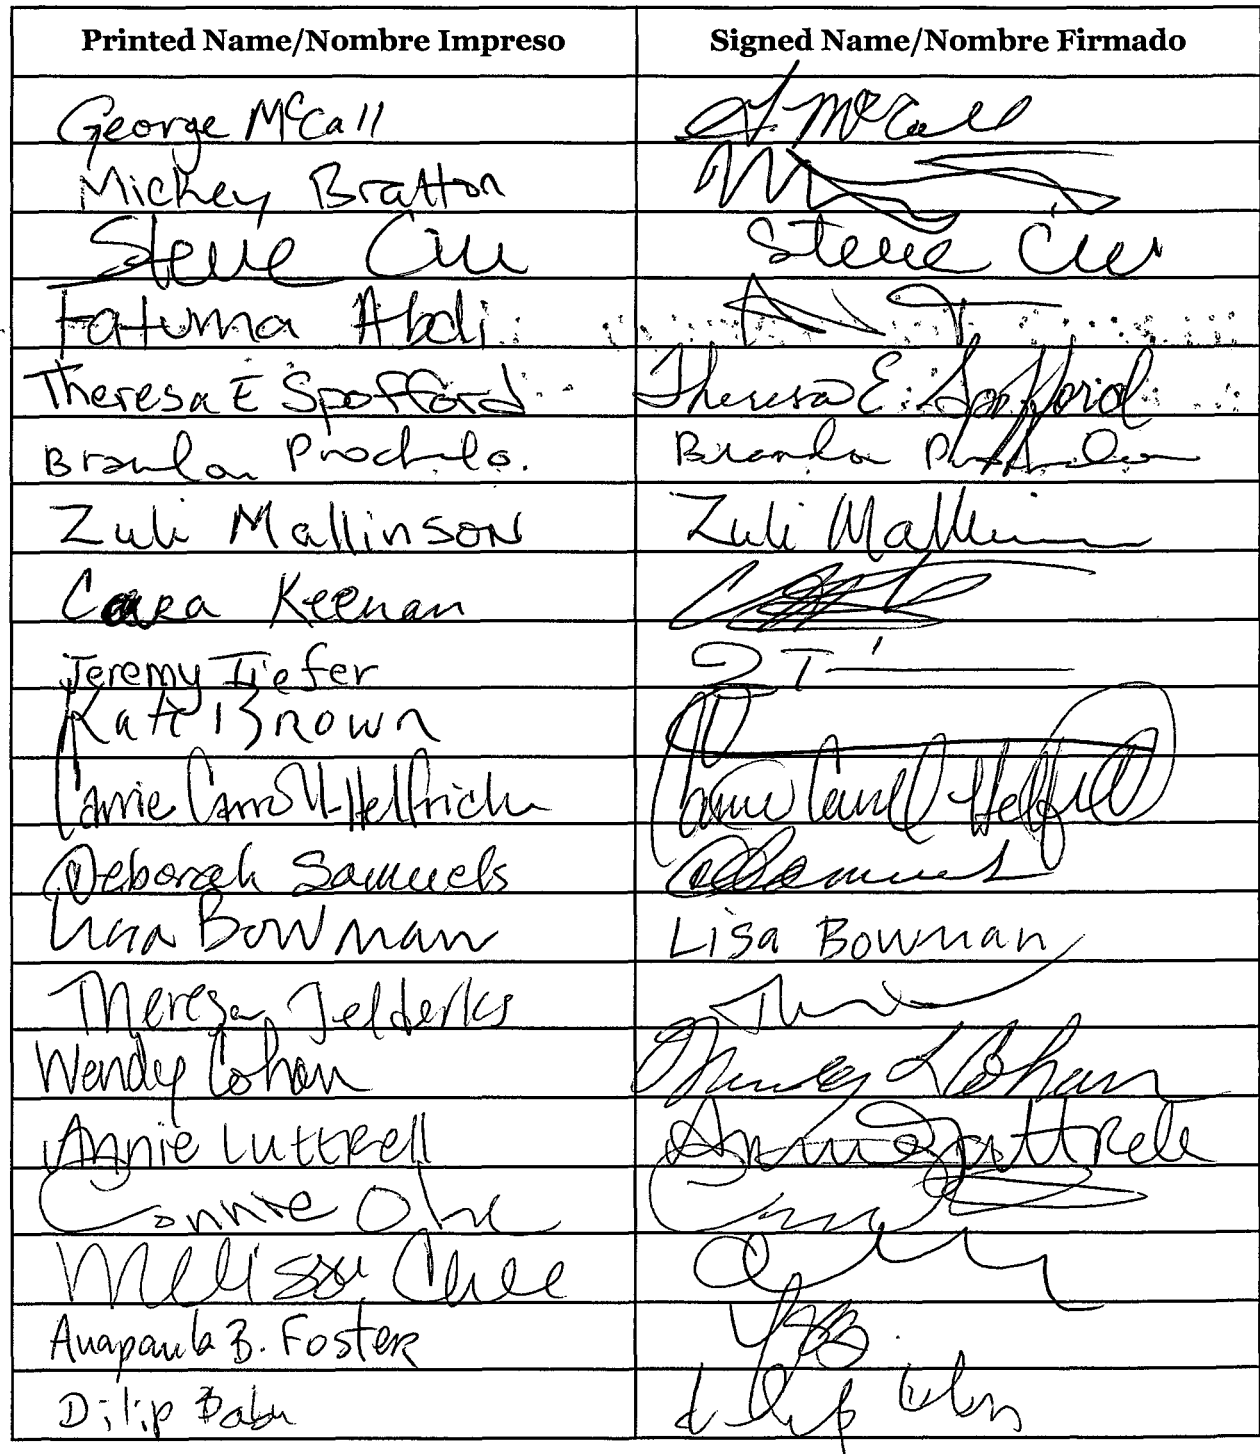 Printed Name/Nombre Impreso Signed Name/Nombre Firmado
George McCall G. McCall
Mickey Bratton
Steve Ciu Steve Ciu
Fatuma Abdi
Theresa E Spofford Theresa E. Spofford
Brandon Brandon
Zuli Mallinson Zuli
Cara Keenan
Jeremy Tiefer J T
Kate Brown
Carrie Carroll-Helfrich Carrie Carroll-Helfrich
Deborah Samuels Samuels
Lisa Bowman Lisa Bowman
Theresa Jelderks
Wendy Cohan Wendy L Cohan
Annie Luttrell Annie Luttrell
Connie
Melissa Chee
Anapaula B. Foster
Dilip Babu dilip